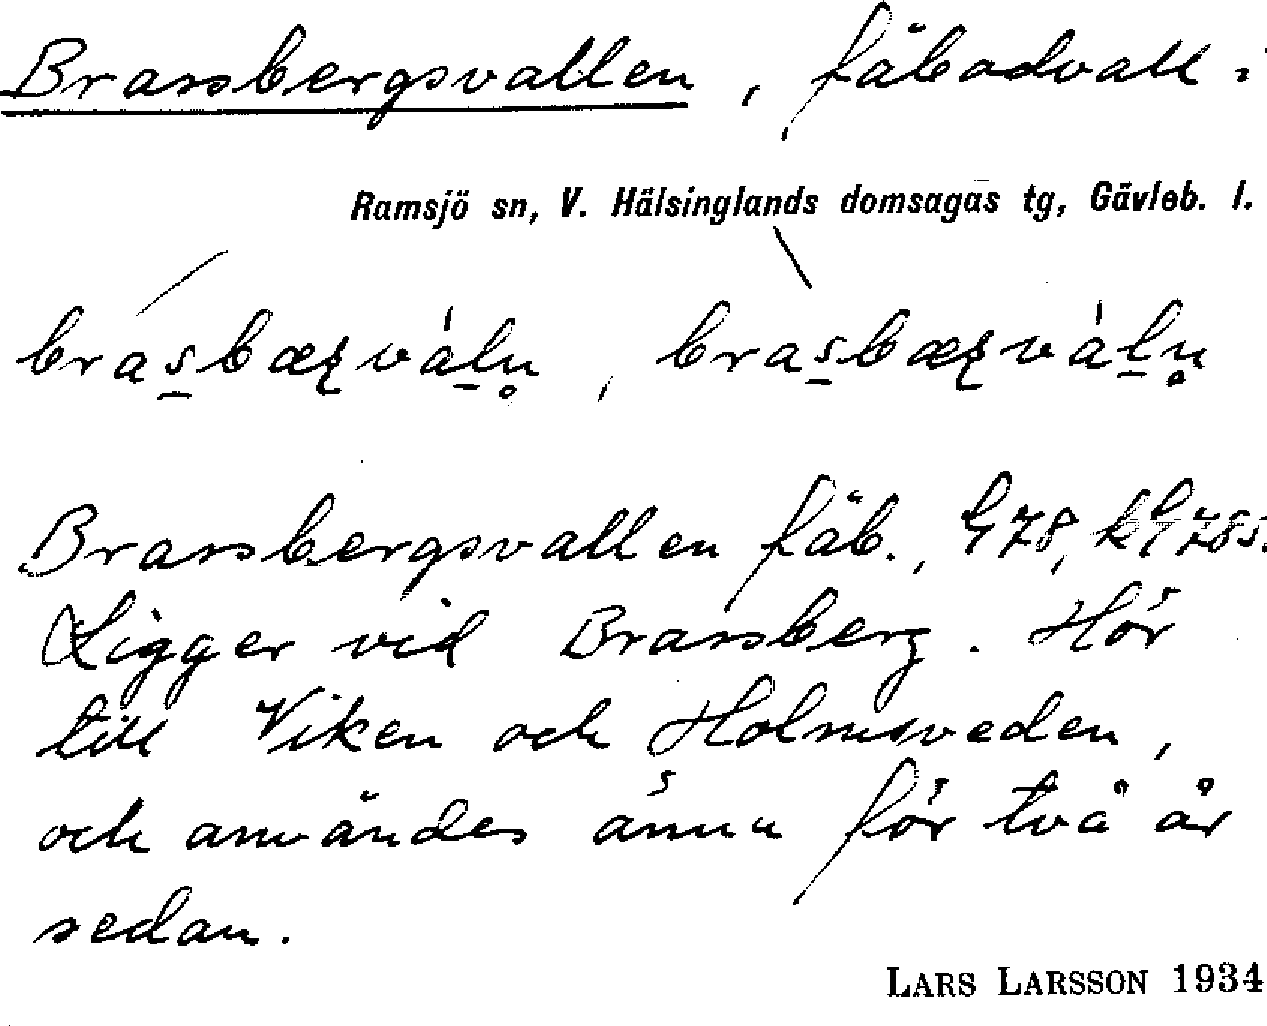 Brassbergsvallen, fäbodvall i
Ramsjö sn, V. Hälsinglands domsagas tg, Gävleb. l.
Brassbergsvallen fäb., G78, kG78s.
Ligger vid Brassberg. Hör
till Viken och Holmsveden,
och användes ännu för två år
sedan.
LARS LARSSON 1934